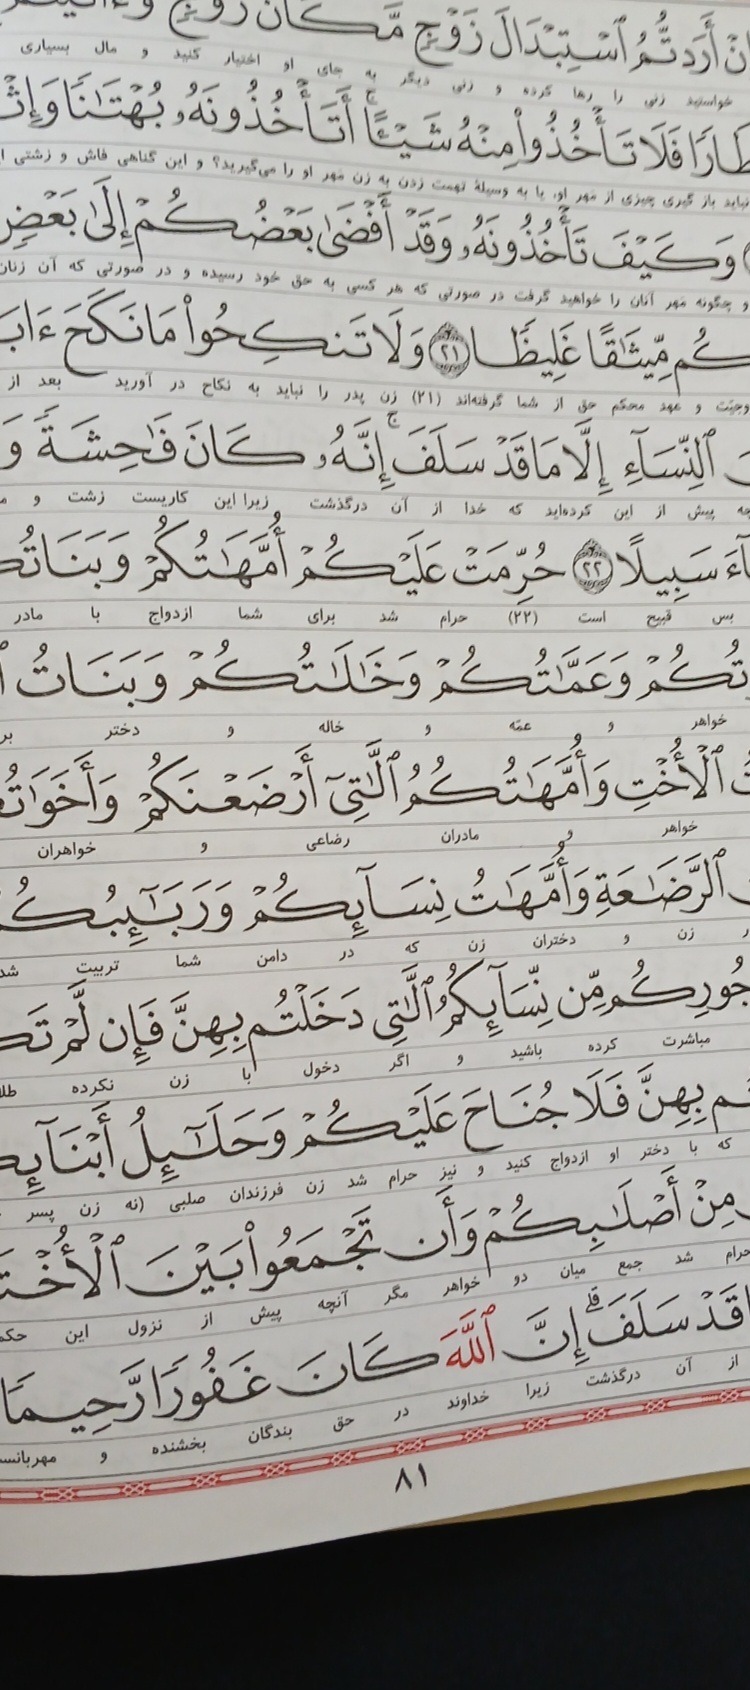 أَرَدتُّمُ ٱسْتِبْدَالَ زَوْجٍ مَّكَانَ زَوْجٍ
خواستید زنی را رها کرده و زنی دیگر به جای او اختیار کنید و مال بسیاری
فَلَا تَأْخُذُوا۟ مِنْهُ شَيْـًٔا ۚ أَتَأْخُذُونَهُۥ بُهْتَـٰنًا
نباید باز گیری چیزی از مهر او، یا به وسیلهٔ تهمت زدن به زن مهر او را می‌گیرید؟ و این گناهی فاش و زشتی
وَكَيْفَ تَأْخُذُونَهُۥ وَقَدْ أَفْضَىٰ بَعْضُكُمْ إِلَىٰ بَعْضٍ
و چگونه مهر آنان را خواهید گرفت در صورتی که هر کسی به حق خود رسیده و در صورتی که آن زنان
مِّيثَـٰقًا غَلِيظًا ﴿٢١﴾ وَلَا تَنكِحُوا۟ مَا نَكَحَ
و عهد محکم حق از شما گرفته‌اند (۲۱) زن پدر را نباید به نکاح در آورید بعد از
ٱلنِّسَآءِ إِلَّا مَا قَدْ سَلَفَ ۚ إِنَّهُۥ كَانَ فَـٰحِشَةً
پیش از این کرده‌اید که خدا از آن درگذشت زیرا این کاریست زشت و
سَبِيلًا ﴿٢٢﴾ حُرِّمَتْ عَلَيْكُمْ أُمَّهَـٰتُكُمْ
بس قبیح است (۲۲) حرام شد برای شما ازدواج با مادر
وَعَمَّـٰتُكُمْ وَخَـٰلَـٰتُكُمْ وَبَنَاتُ
خواهر و عمّه و خاله و دختر
ٱلْأُخْتِ وَأُمَّهَـٰتُكُمُ ٱلَّـٰتِىٓ أَرْضَعْنَكُمْ
خواهر و مادران رضاعی و خواهران
ٱلرَّضَـٰعَةِ وَأُمَّهَـٰتُ نِسَآئِكُمْ
زن و دختران زن که در دامن شما تربیت
مِّن نِّسَآئِكُمُ ٱلَّـٰتِى دَخَلْتُم بِهِنَّ فَإِن لَّمْ
مباشرت کرده باشید و اگر دخول با زن نکرده
بِهِنَّ فَلَا جُنَاحَ عَلَيْكُمْ وَحَلَـٰٓئِلُ
که با دختر او ازدواج کنید و نیز حرام شد زن فرزندان صلبی (نه زن پسر
مِنْ أَصْلَـٰبِكُمْ وَأَن تَجْمَعُوا۟ بَيْنَ
حرام شد جمع میان دو خواهر مگر آنچه پیش از نزول این
قَدْ سَلَفَ ۗ إِنَّ ٱللَّهَ كَانَ غَفُورًا رَّحِيمًا
از آن درگذشت زیرا خداوند در حق بندگان بخشنده و
۸۱